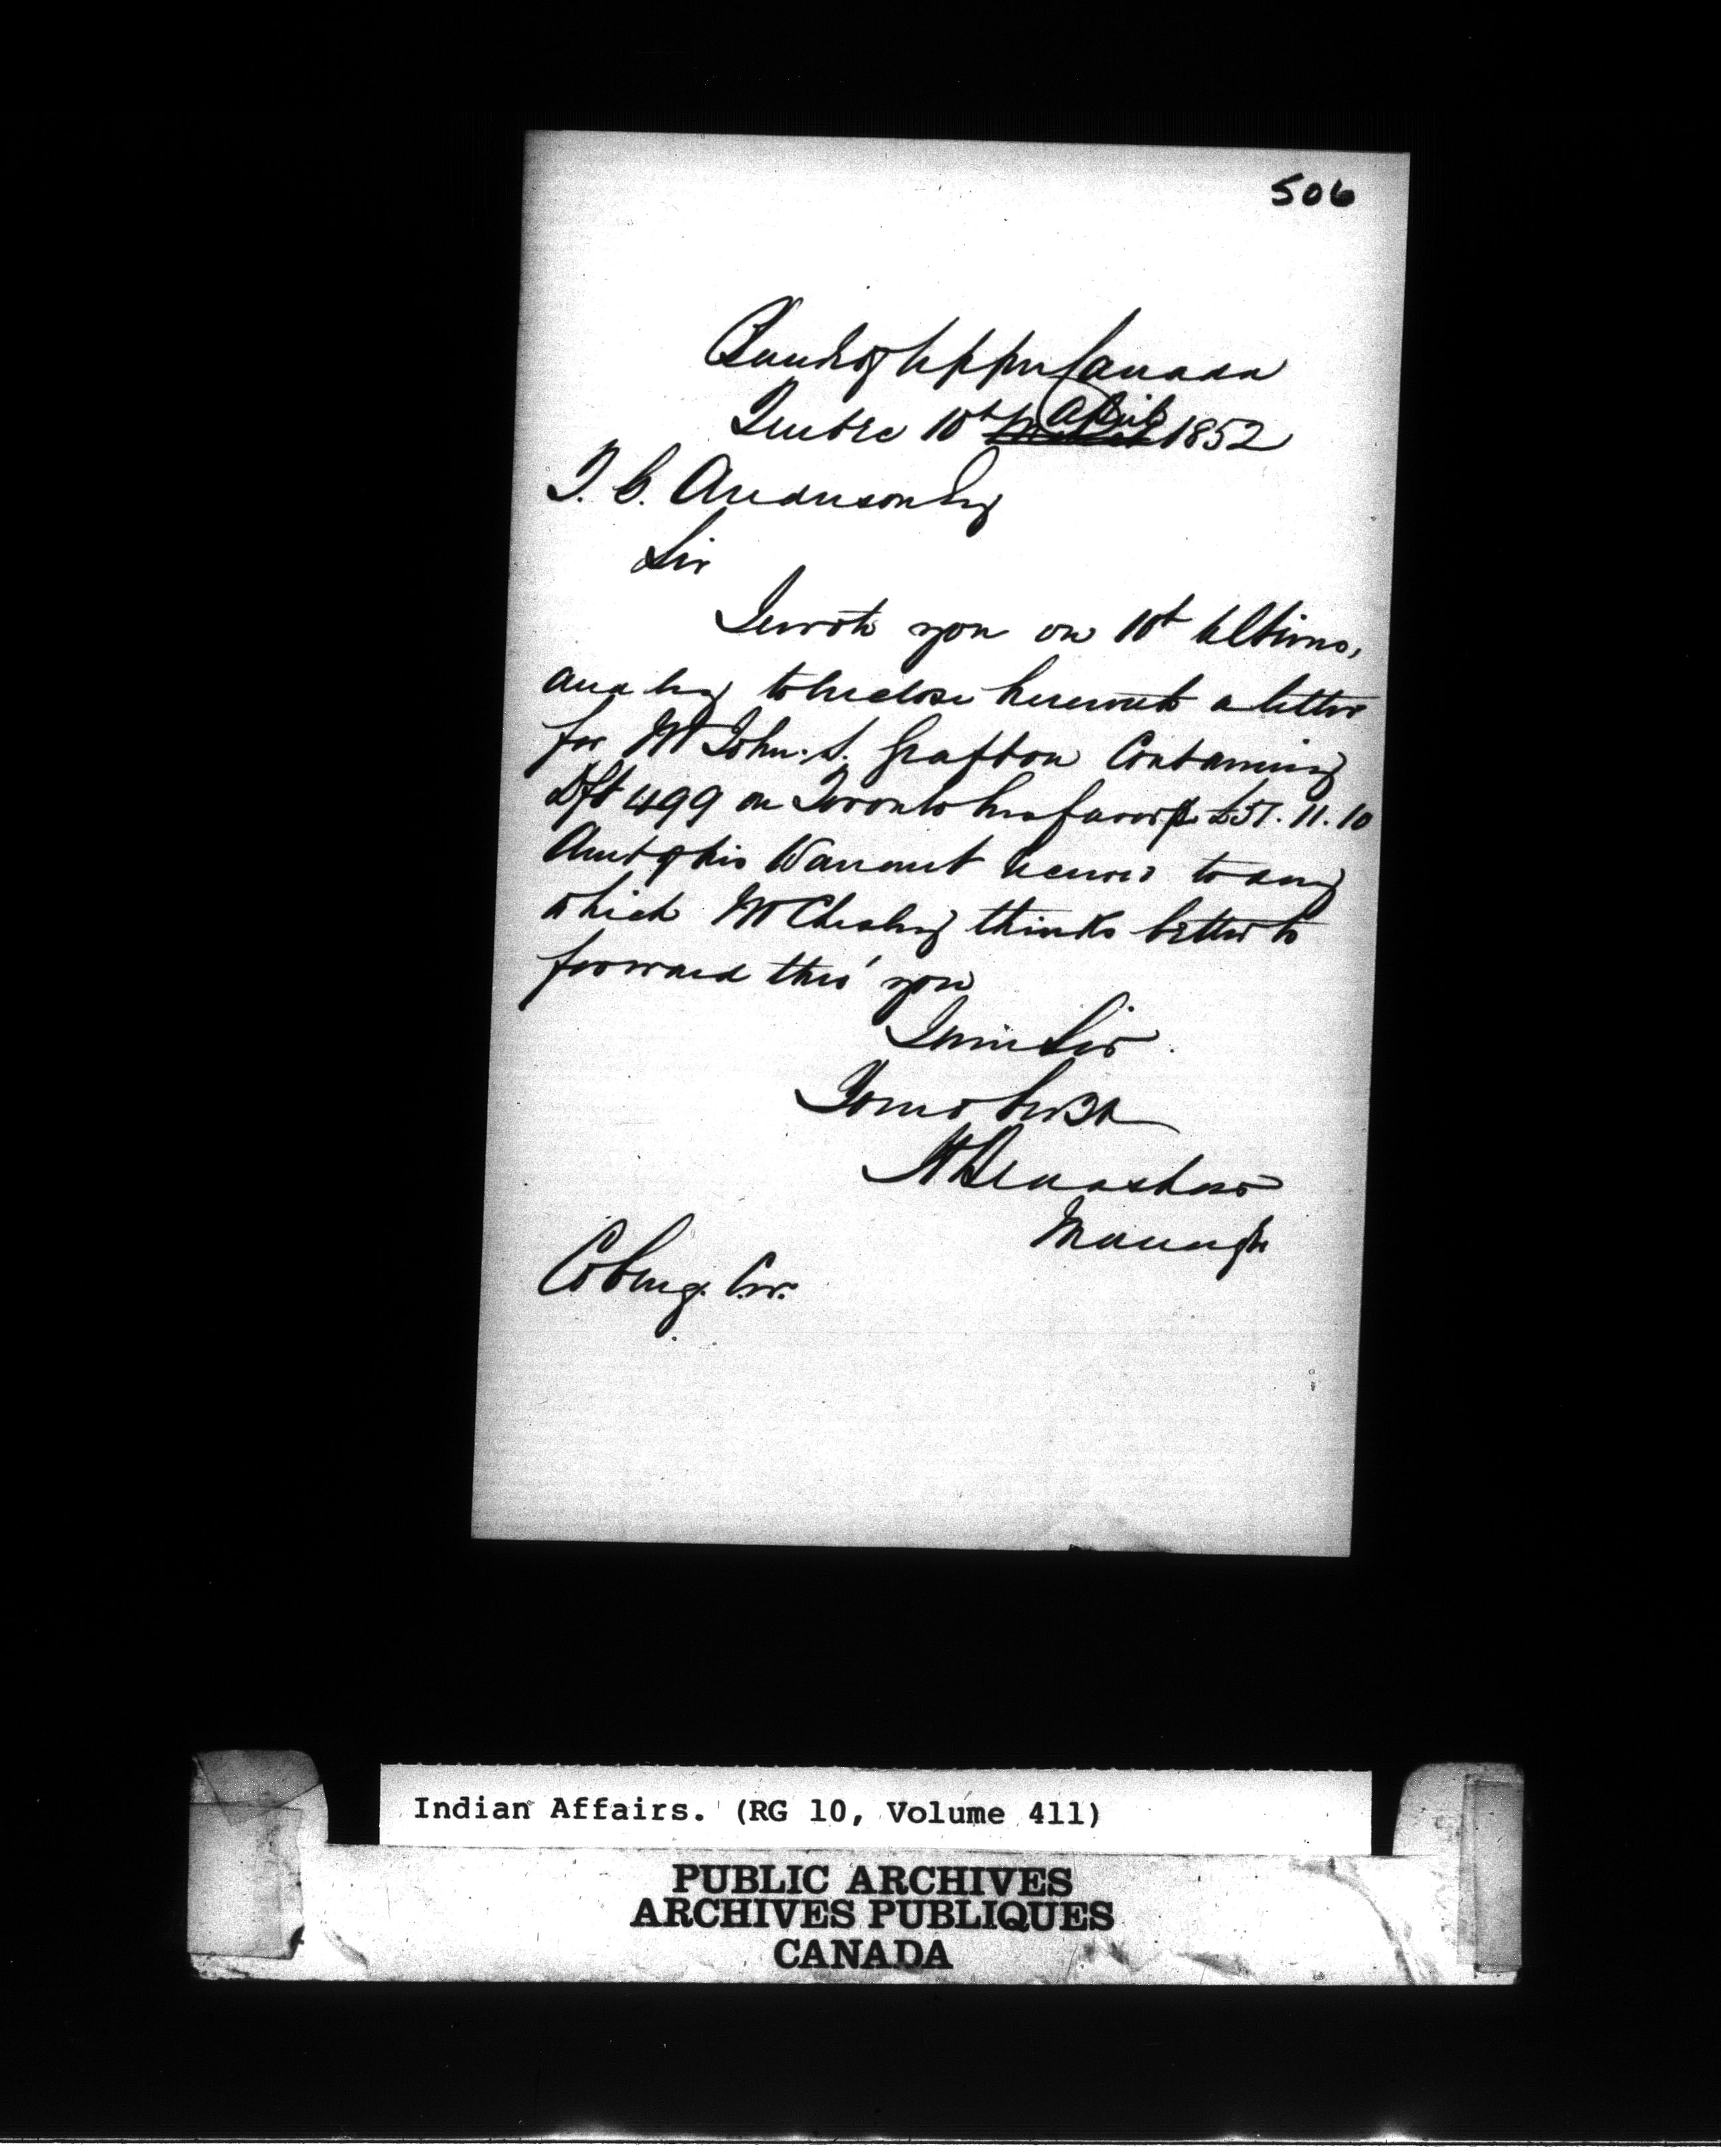 506
Bank of Upper Canada
Quebec 10th April 1852
T. G. Anderson Esq
Sir
I wrote you on 10th Ultimo,
and beg to enclose herewith a letter
for Mr John. S. Grafton Containing
Dft 499 on Toronto his favor for £37. 11. 10
Amt of his Warrant
which Mr Chesley thinks better to
forward thro' you
I am Sir
Your ob Svt
Manager
Cobourg. C.W.
Indian Affairs. (RG 10, Volume 411)
PUBLIC ARCHIVES
ARCHIVES PUBLIQUES
CANADA